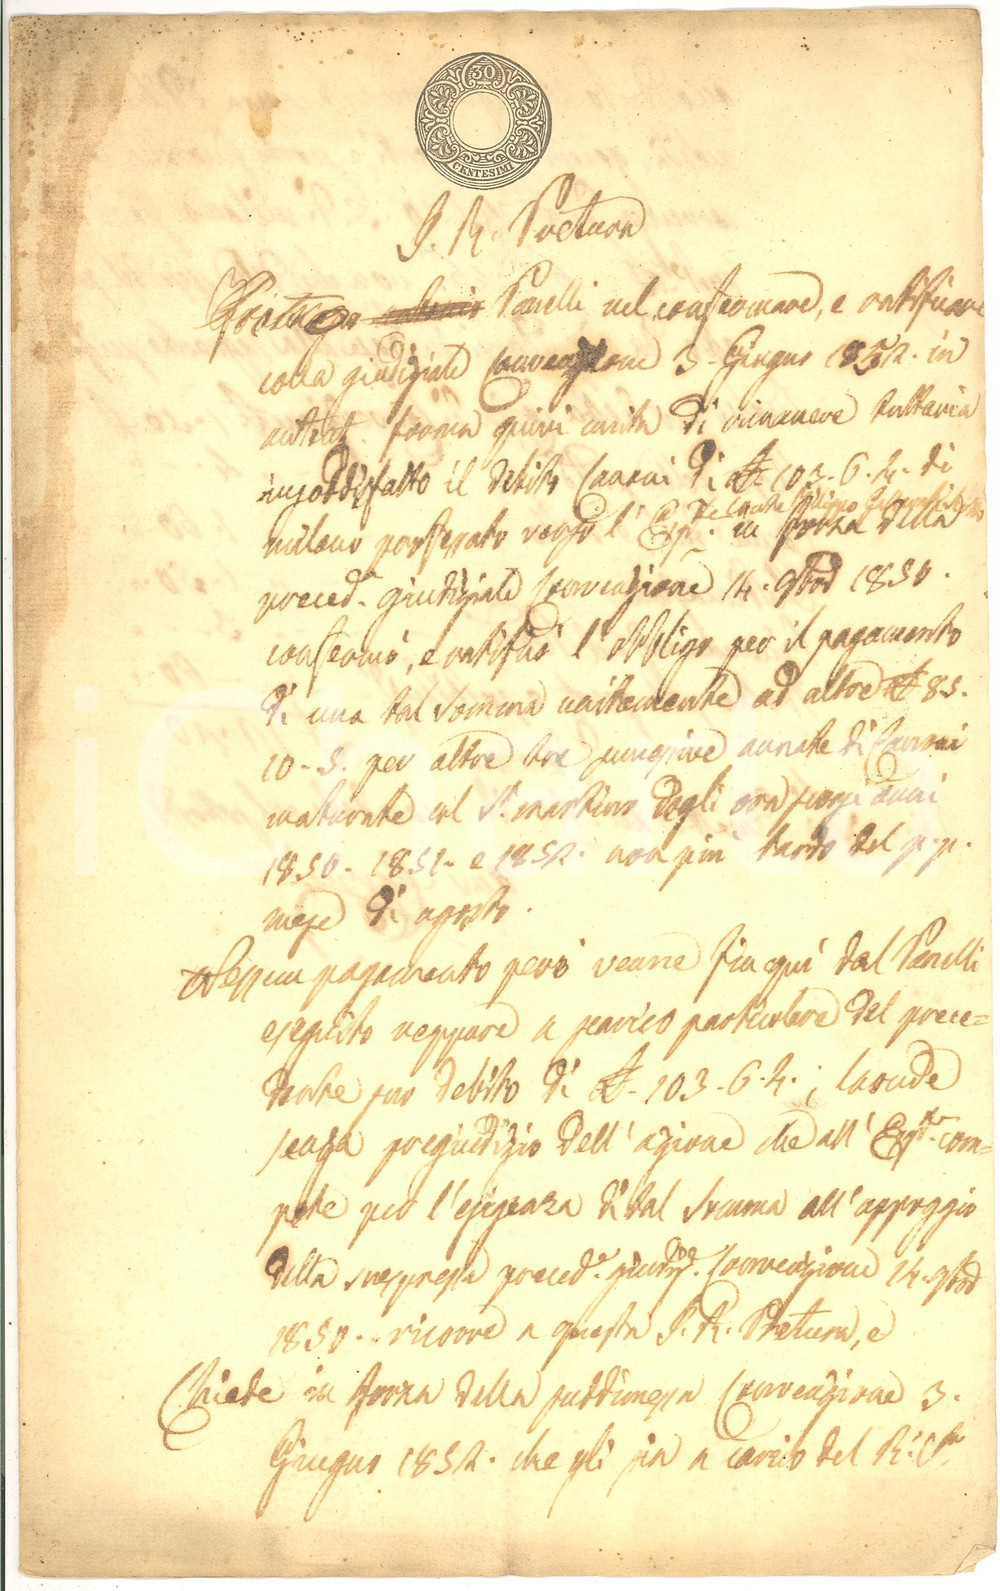 30
CENTESIMI
I. R. Pretura
Panelli nel confermare, e ratificare
colla giudiziale Convenzione 3. Giugno 1852. in
autent. forma quivi unita di rimanere tuttavia
insoddisfatto il debito Canoni di £ 103. 6. 4. di
Conte Filippo
milano professato verso l' Esp.te in forza della
preced. giudiziale Convenzione 14. 9bre 1850.
confermò, e ratificò l'obbligo per il pagamento
di una tal somma unitamente ad altre £ 85.
10. 5. per altre tre successive annate di Canoni
maturate al S. Martino degli ora scorsi anni
1850. 1851. e 1852. non più tardo del p. p.
mese di agosto.
Nessun pagamento però venne fin qui dal Panelli
eseguito neppure a scarico particolare del prece=
dente suo debito di £. 103. 6. 4.; laonde
senza pregiudizio dell'azione che all' Esp.te com=
pete per l'esigenza di tal somma all'appoggio
della suespressa preced.e giudiz. Convenzione 14. 9bre
1850. ricorre a questa I. R. Pretura, e
Chiede in forza della suddimessa Convenzione 3.
Giugno 1852. che gli sia a carico del R. C.